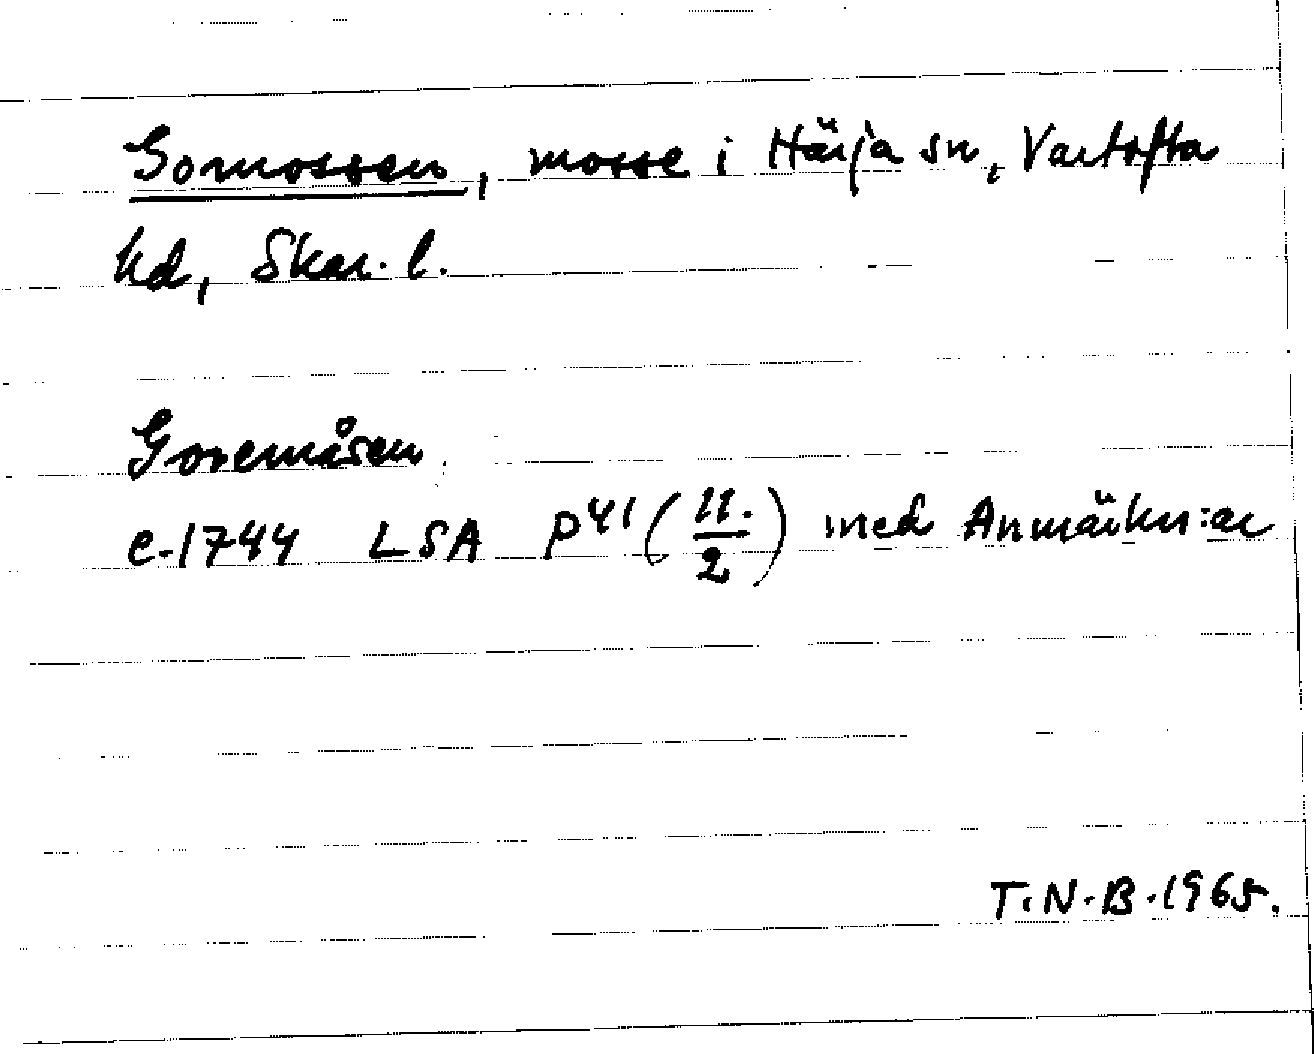 Gormossen, mosse i Härja sn, Vartofta
hd, Skar. l.
Goremåsen
c. 1744 LSA P41 (11./2) med Anmärkn:ar
T.N.B. 1965.